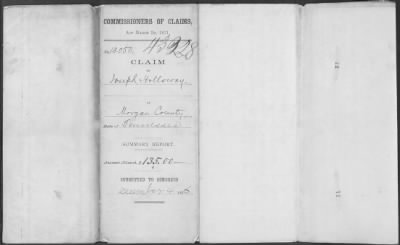 COMMISSIONERS OF CLAIMS,
Act March 3d, 1871.
No. 12.050. 43328
CLAIM
of
Joseph Holloway,
of
Morgan County,
State of Tennessee
SUMMARY REPORT.
Amount Allowed, $ 135.00
SUBMITTED TO CONGRESS
December 4